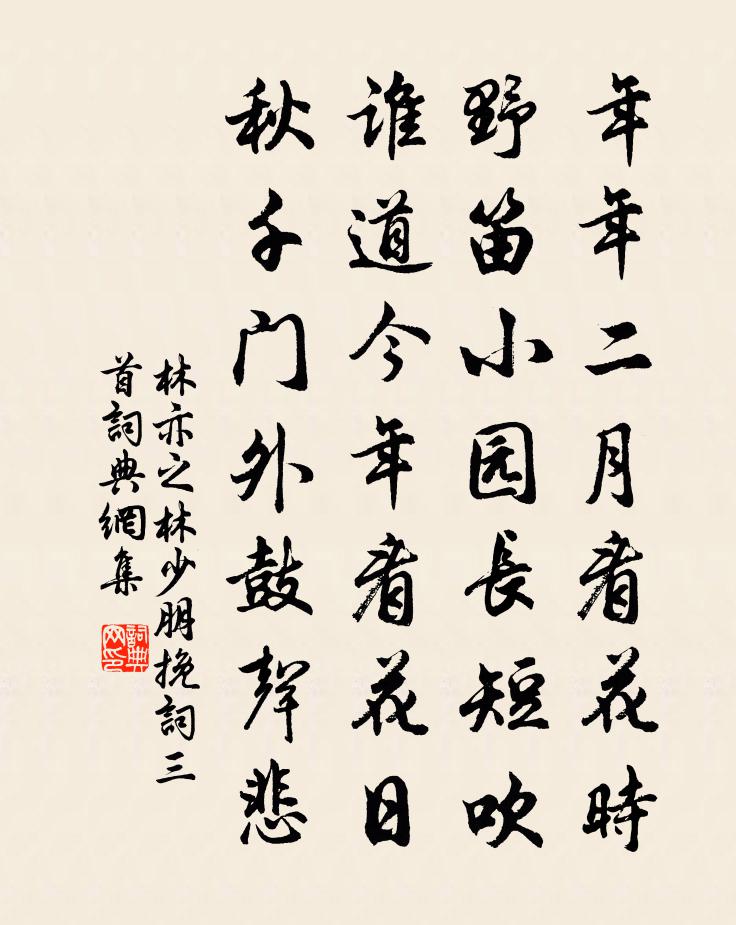 年年二月看花時
野笛小园長短吹
誰道今年看花日
秋千門外鼓聲悲
林亦之林少朋挽詞三
首詞典網集
詞典
网印